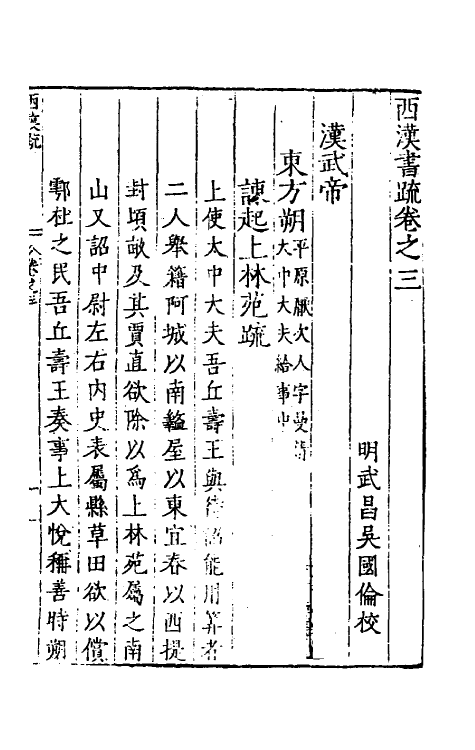 西漢書疏卷之三
明武昌吳國倫校
漢武帝
東方朔平原厭次人字曼倩大中大夫給事中
諫起上林苑疏
上使太中大夫吾丘壽王與待詔能用筭者
二人舉籍阿城以南盩厔以東宜春以西提
封頃畝及其賈直欲除以爲上林苑屬之南
山又詔中尉左右內史表屬縣草田欲以償
鄠杜之民吾丘壽王奏事上大悅稱善時朔